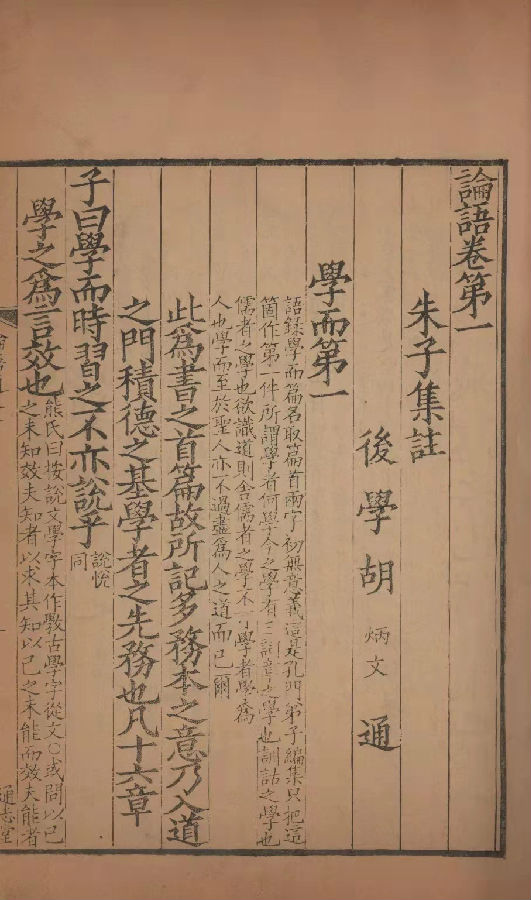 論語卷第一
朱子集註
後學胡炳文通
學而第一
語錄學而篇名取篇首兩字初無意義這是孔門弟子編集只把這
箇作第一件所謂學者何學今之學有三詞章之學也訓詁之學也
儒者之學也欲識道則舍儒者之學不可學者學為
人也學而至於聖人亦不過盡為人之道而已爾
此為書之首篇故所記多務本之意乃入道
之門積德之基學者之先務也凡十六章
子曰學而時習之不亦說乎
說悅
同
學之為言效也
熊氏曰按說文學字本作斆古學字從文○或問以己
之未知效夫知者以求其知以己之未能而效夫能者
通志堂